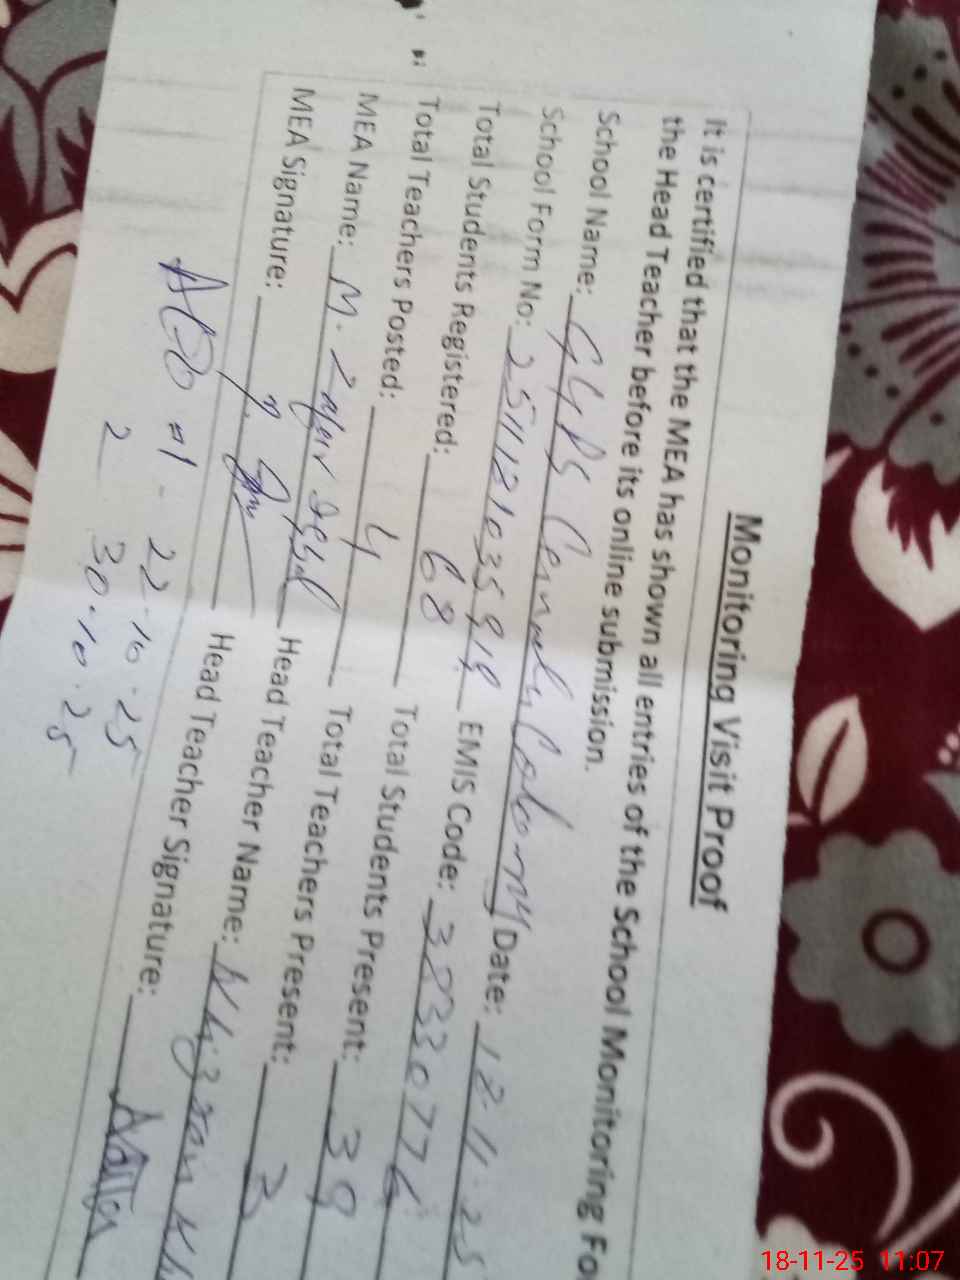 Monitoring Visit Proof
It is certified that the MEA has shown all entries of the School Monitoring Fo
the Head Teacher before its online submission.
School Name: Date: 18-11-25
School Form No: EMIS Code: 38330776
Total Students Registered: 68 Total Students Present: 39
Total Teachers Posted: 4 Total Teachers Present: 3
MEA Name: M. Head Teacher Name:
MEA Signature: Head Teacher Signature:
AEO #1 - 22-10-25
2 30-10-25
18-11-25 11:07